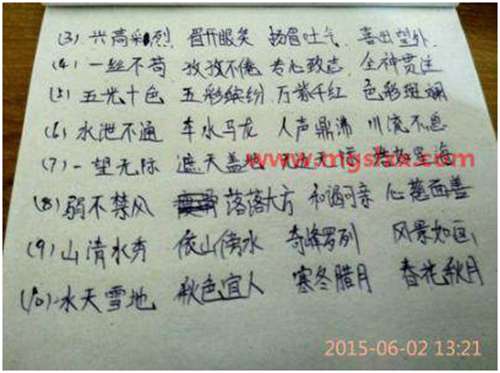 (3) 兴高彩烈 眉开眼笑 扬眉吐气 喜出望外
(4) 一丝不苟 孜孜不倦 专心致志 全神贯注
(5) 五光十色 五彩缤纷 万紫千红 色彩斑斓
(6) 水泄不通 车水马龙 人声鼎沸 川流不息
(7) 一望无际 遮天盖地
(8) 弱不禁风 落落大方 和蔼可亲 心慈面善
(9) 山清水秀 依山傍水 奇峰罗列 风景如画
(10) 水天雪地 秋色宜人 寒冬腊月 春花秋月
2015-06-02 13:21